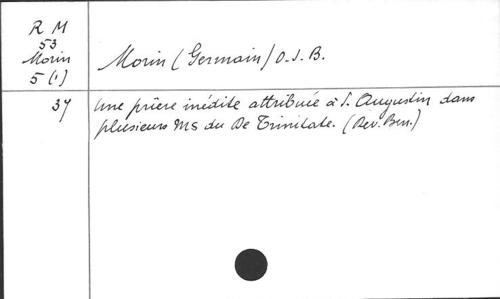 R M
53
Morin
5 (1)
Morin (Germain) O.S.B.
37
Une prière inédite attribuée à S. Augustin dans
plusieurs Ms du De Trinitate. (Rev. Ben.)